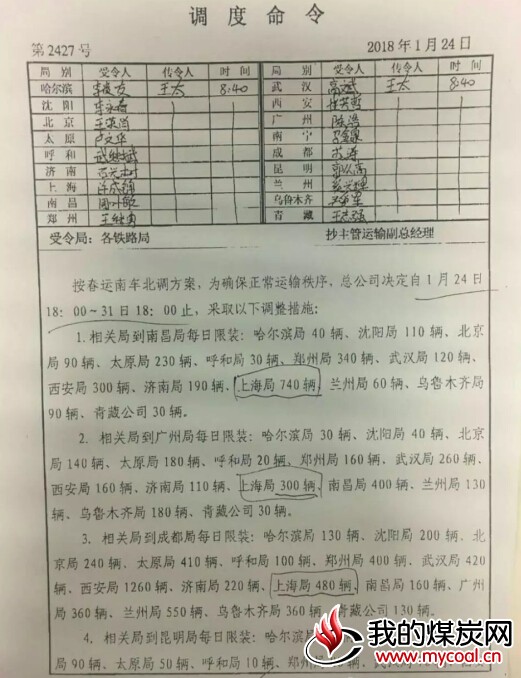 调度命令
第2427号 2018年1月24日
局别 受令人 传令人 时间 局别 受令人 传令人 时间
哈尔滨 王太 8:40 武汉 王太 8:40
沈阳 西安
北京 广州
太原 南宁
呼和 成都
济南 昆明
上海 兰州
南昌 乌鲁木齐
郑州 青藏
受令局：各铁路局 抄主管运输副总经理
按春运南车北调方案，为确保正常运输秩序，总公司决定自1月24日
18：00~31日18：00止，采取以下调整措施：
1.相关局到南昌局每日限装：哈尔滨局40辆、沈阳局110辆、北京
局90辆、太原局230辆、呼和局30辆、郑州局340辆、武汉局120辆、
西安局300辆、济南局190辆、上海局740辆、兰州局60辆、乌鲁木齐局
90辆、青藏公司30辆。
2. 相关局到广州局每日限装：哈尔滨局30辆、沈阳局40辆、北京
局140辆、太原局180辆、呼和局20辆、郑州局160辆、武汉局260辆、
西安局160辆、济南局110辆、上海局300辆、南昌局400辆、兰州局130
辆、乌鲁木齐局180辆、青藏公司30辆。
3. 相关局到成都局每日限装：哈尔滨局130辆、沈阳局200辆、北
京局240辆、太原局410辆、呼和局100辆、郑州局400辆、武汉局420
辆、西安局1260辆、济南局220辆、上海局480辆、南昌局160辆、广州
局360辆、兰州局550辆、乌鲁木齐局360辆、青藏公司130辆。
4. 相关局到昆明局每日限装：哈尔滨
局90辆、太原局50辆、呼和局10辆、郑州
我的煤炭网
www.mycoal.cn